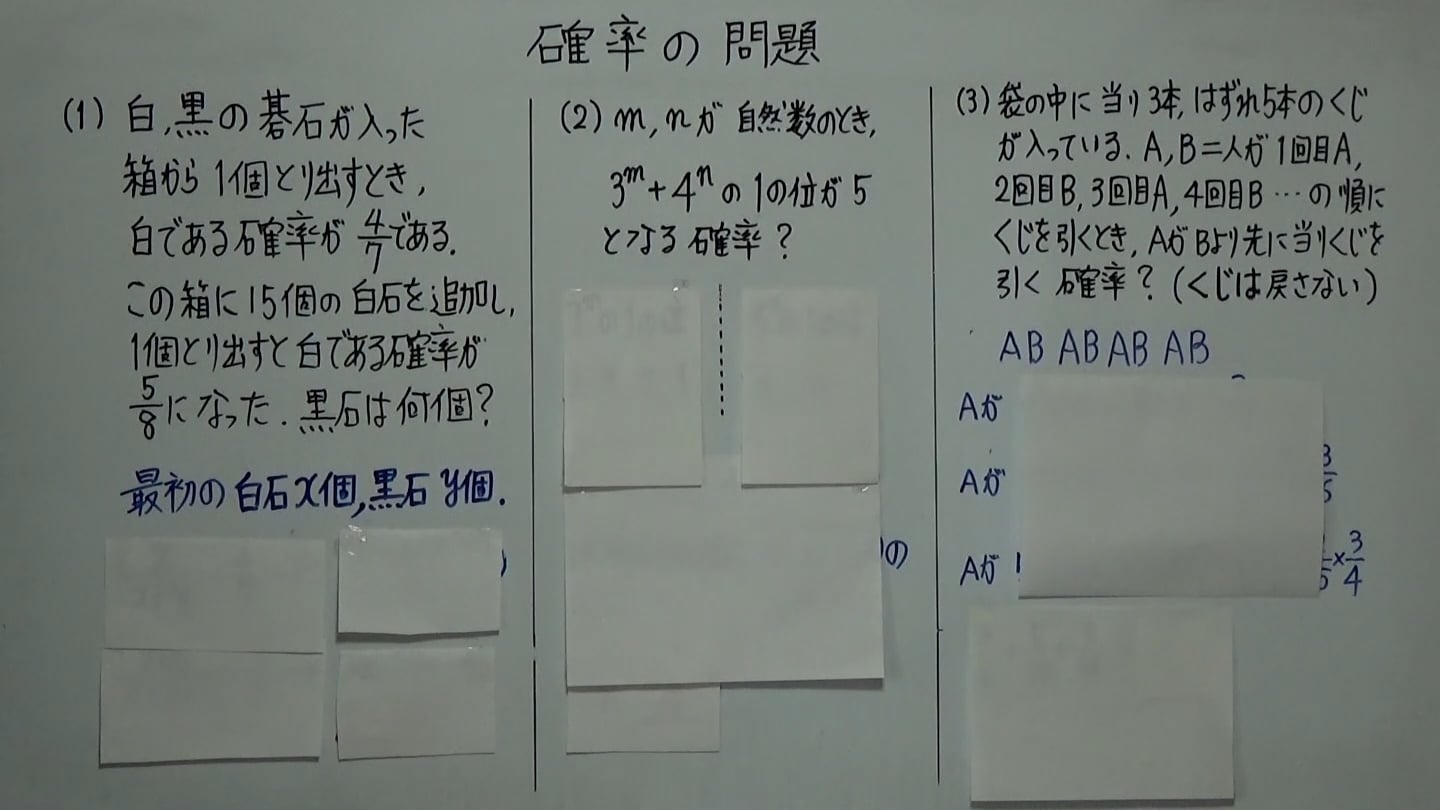 確率の問題
(1) 白,黒の碁石が入った
箱から1個とり出すとき,
白である確率が 4/7である.
この箱に15個の白石を追加し,
1個とり出すと白である確率が
5/8になった. 黒石は何個?
最初の白石x個,黒石y個.
(2) m,nが自然数のとき,
3^m+4^nの1の位が5
となる確率?
の
(3) 袋の中に当り3本,はずれ5本のくじ
が入っている. A,B二人が1回目A,
2回目B,3回目A,4回目B…の順に
くじを引くとき, AがBより先に当りくじを
引く確率? (くじは戻さない)
AB AB AB AB
Aが
Aが
Aが
×3/4